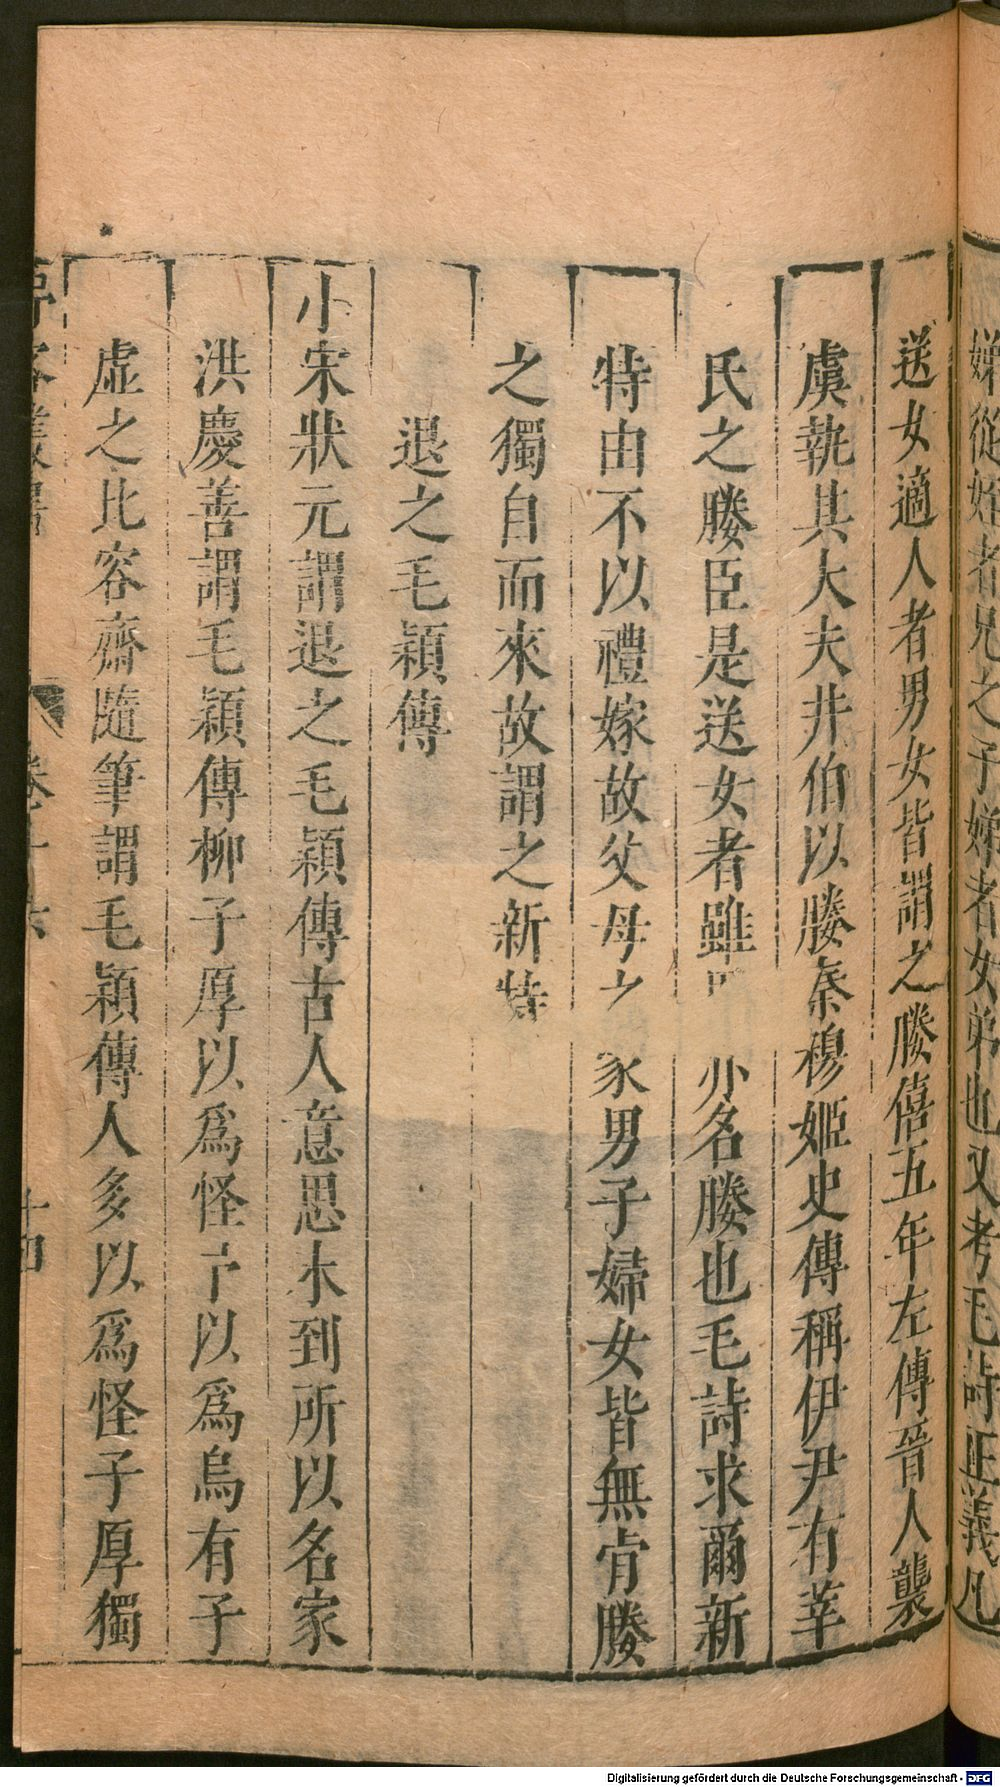 娣從姪者兄之子娣者女弟也又考毛詩正義凡
送女適人者男女皆謂之媵僖五年左傳晉人襲
虞執其大夫井伯以媵秦穆姬史傳稱伊尹有莘
氏之媵臣是送女者雖名媵也毛詩求爾新
特由不以禮嫁故父母之家男子婦女皆無肯媵
之獨自而來故謂之新特
退之毛穎傳
小宋狀元謂退之毛穎傳古人意思未到所以名家
洪慶善謂毛穎傳柳子厚以為怪予以為烏有子
虛之比容齋隨筆謂毛穎傳人多以為怪子厚獨
卷十六
十四
Digitalisierung gefördert durch die Deutsche Forschungsgemeinschaft - DFG